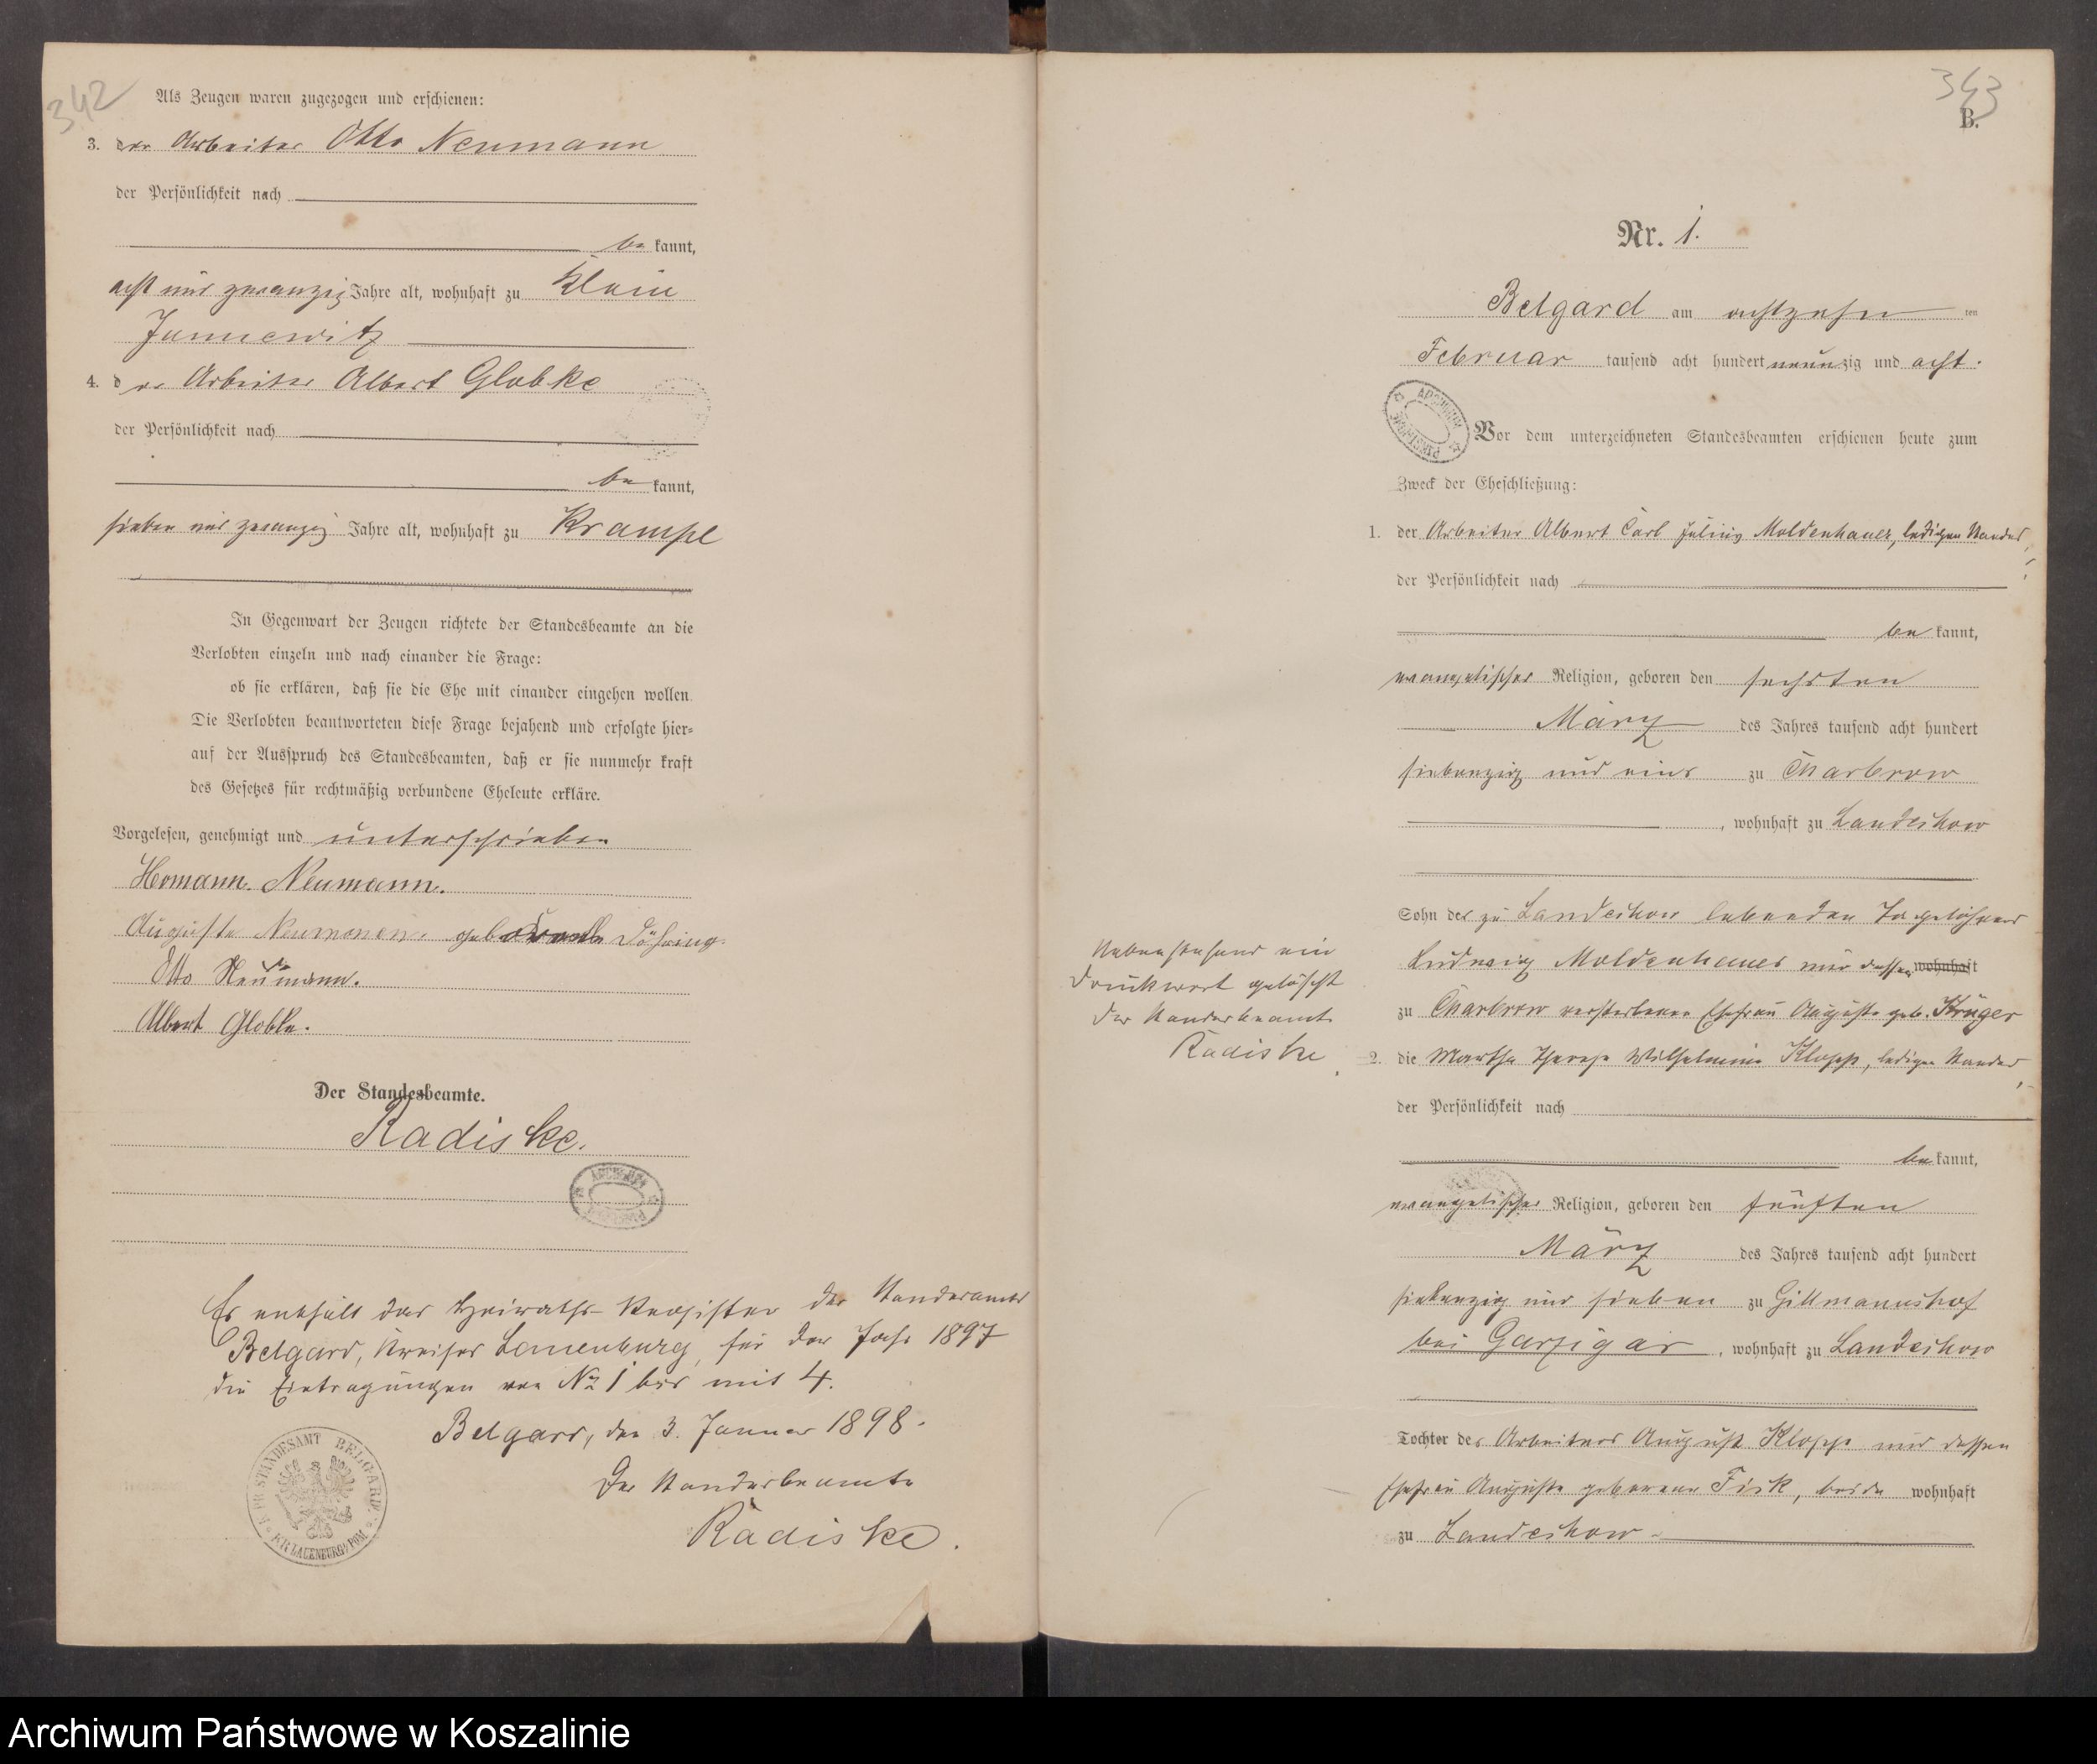 342
Als Zeugen waren zugezogen und erschienen:
3. der Arbeiter Otto Neumann
der Persönlichkeit nach
be kannt,
acht und zwanzig Jahre alt, wohnhaft zu Klein
Jannewitz
4. der Arbeiter Albert Globke
der Persönlichkeit nach
be kannt,
sieben und zwanzig Jahre alt, wohnhaft zu Krampe
In Gegenwart der Zeugen richtete der Standesbeamte an die
Verlobten einzeln und nach einander die Frage:
ob sie erklären, daß sie die Ehe mit einander eingehen wollen.
Die Verlobten beantworteten diese Frage bejahend und erfolgte hier-
auf der Ausspruch des Standesbeamten, daß er sie nunmehr kraft
des Gesetzes für rechtmäßig verbundene Eheleute erkläre.
Vorgelesen, genehmigt und unterschrieben
Hermann Neumann.
Auguste Neumann geborene Döhring.
Otto Neumann.
Albert Globke.
Der Standesbeamte.
Radiske.
Es enthält das Heiraths-Register des Standesamts
Belgard, Kreises Lauenburg, für das Jahr 1897
die Eintragungen von No 1 bis mit 4.
Belgard, den 3. Januar 1898.
Der Standesbeamte
Radiske.
K. PR. STANDESAMT BELGARD
KR. LAUENBURG i/POM
343
B.
Nr. 1.
Belgard am achtzehn ten
Februar tausend acht hundert neunzig und acht.
Vor dem unterzeichneten Standesbeamten erschienen heute zum
Zweck der Eheschließung:
1. der Arbeiter Albert Carl Julius Moldenhauer, ledigen Standes,
der Persönlichkeit nach
be kannt,
evangelischer Religion, geboren den sechsten
März des Jahres tausend acht hundert
siebenzig und eins zu Charbrow
, wohnhaft zu Landechow
Sohn des zu Landechow lebenden Tagelöhners
Ludwig Moldenhauer und dessen wohnhaft
zu Charbrow verstorbenen Ehefrau Auguste geb. Krüger
Nebenstehend ein
Druckwort gelöscht
Der Standesbeamte
Radiske
2. die Martha Therese Wilhelmine Klopp, ledigen Standes,
der Persönlichkeit nach
be kannt,
evangelischer Religion, geboren den fünften
März des Jahres tausend acht hundert
siebenzig und sieben zu Gillmannshof
bei Garzigar, wohnhaft zu Landechow
Tochter des Arbeiters August Klopp und dessen
Ehefrau Auguste geborene Fick, beide wohnhaft
zu Landechow
Archiwum Państwowe w Koszalinie